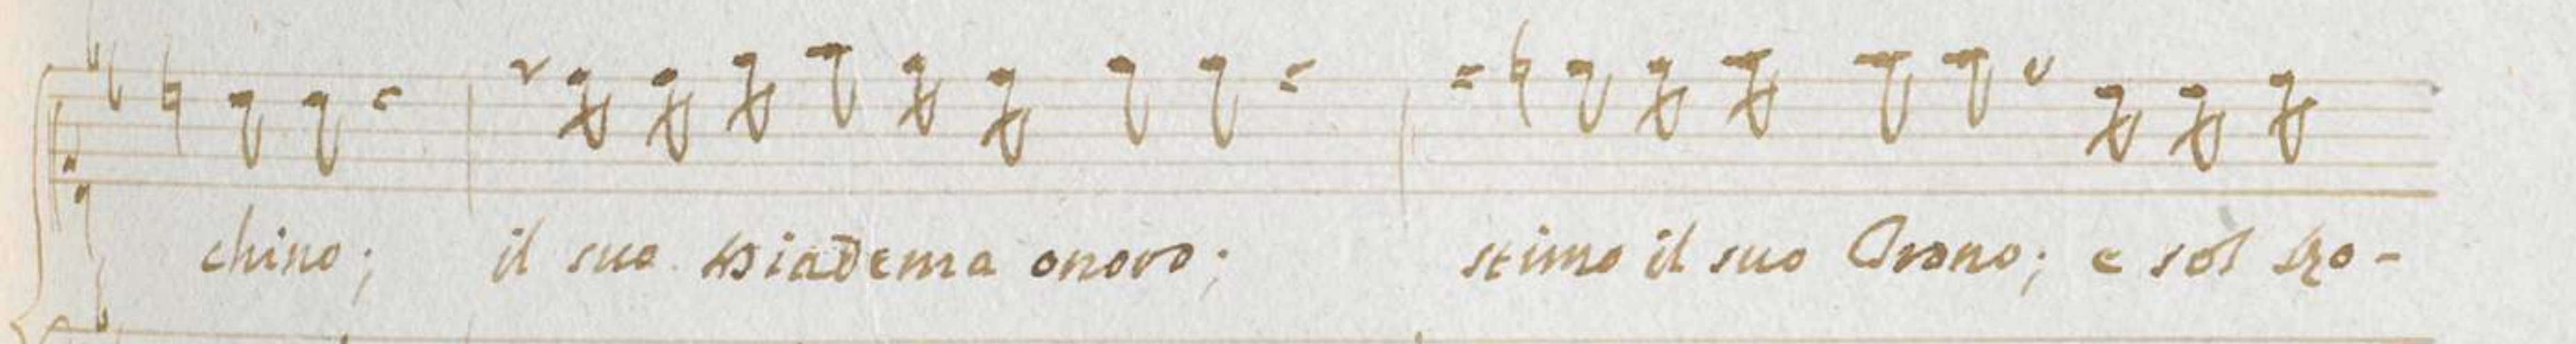 chino; il suo Diadema onoro; stimo il suo Trono; e sol sʒo-